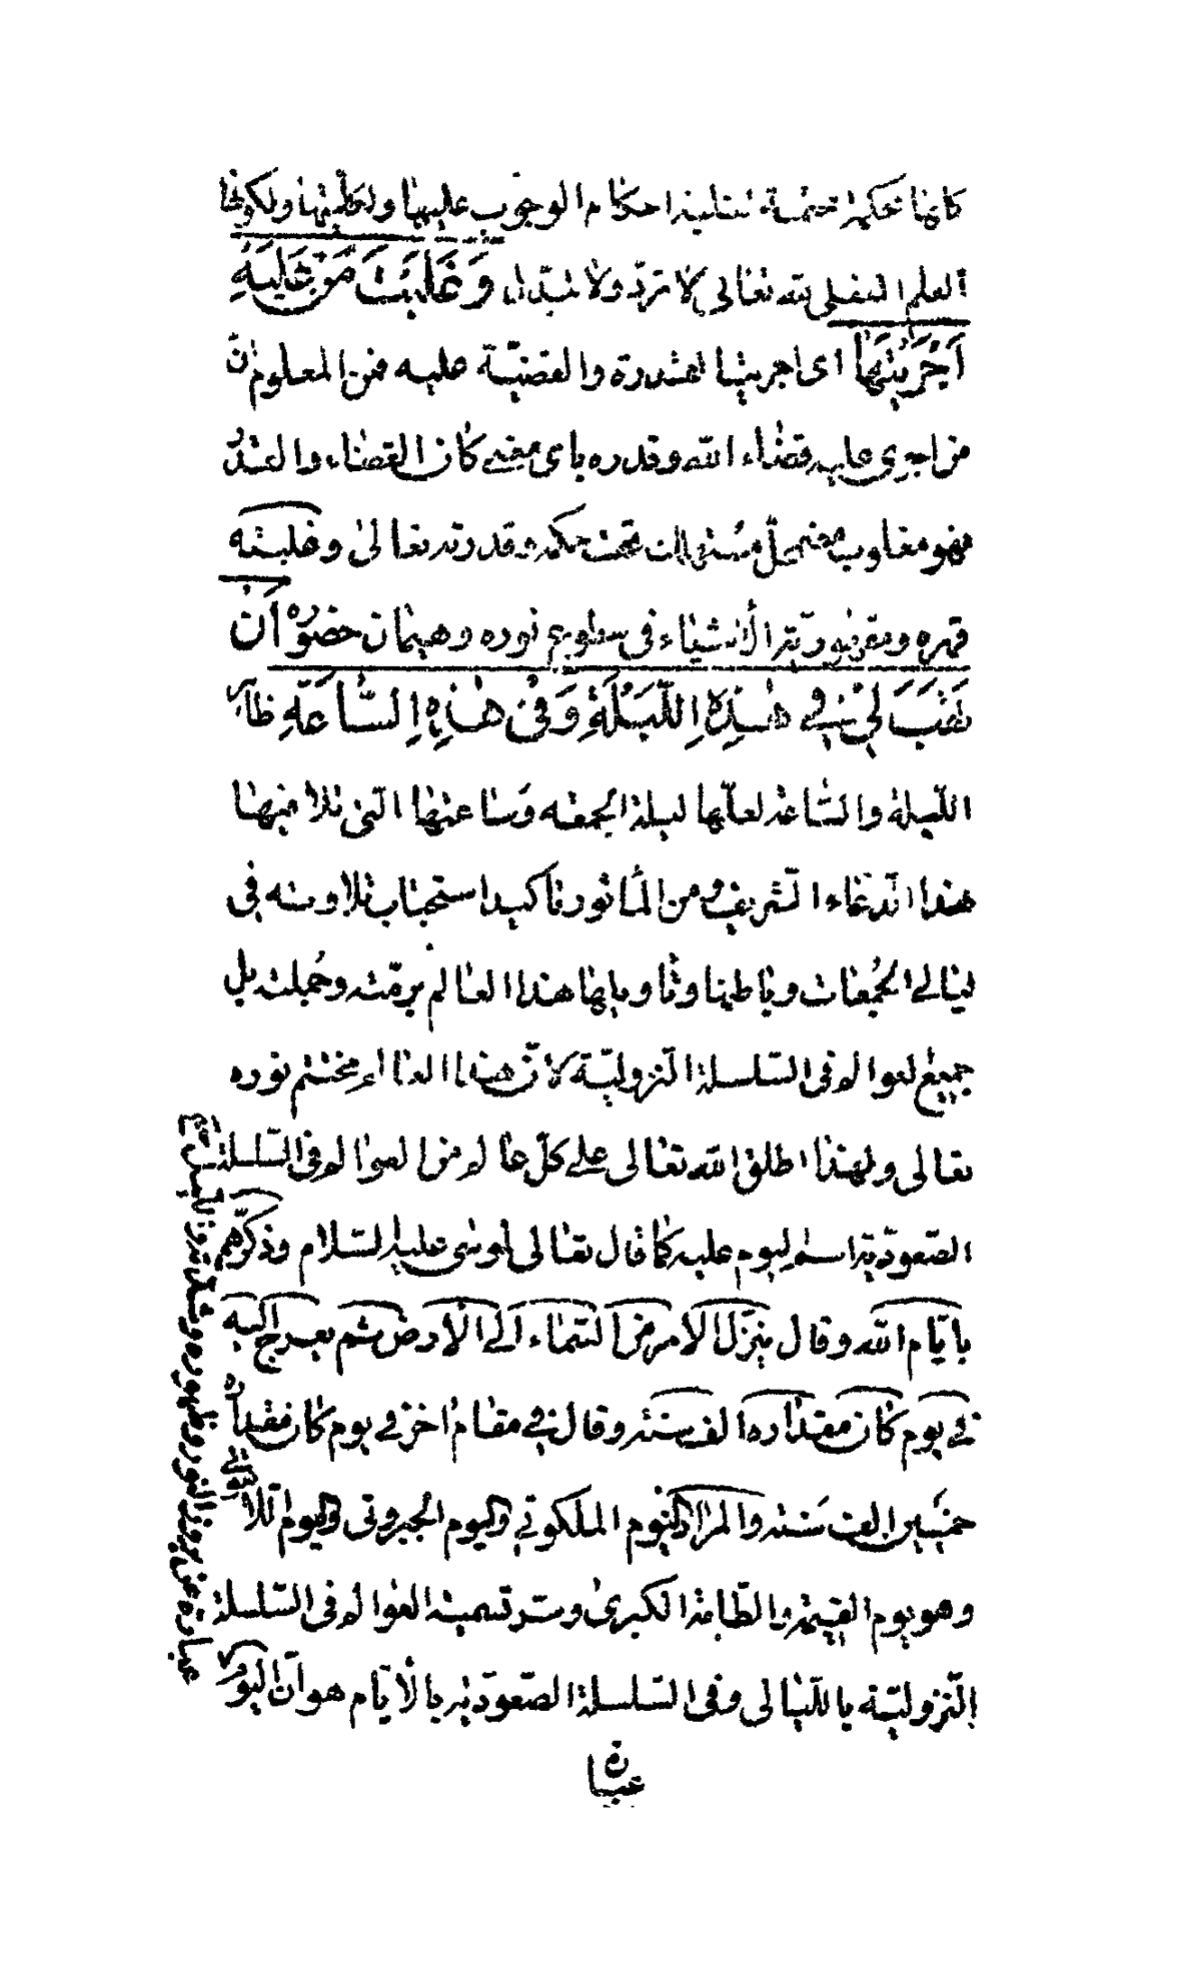 كانها محكمة حتمية لغلبة احكام الوجوب عليها ولغلبتها ولكونها
العلم الفعلى لله تعالى لا ترد ولا تبدل وَغَلَبَتْ مَنْ عَلَيْهِ
اَجْرَيْتَهَا اى اجريتها القدرة والقضية عليه فمن المعلوم انّ
من اجرى عليه قضاء الله وقدره باى معنى كان القضاء والقدر
فهو مغلوب مضمحل مستهلك تحت حكمه وقدرته تعالى وغلبته
قهره ومقهورية الأشياء فى سطوع نوره وهيمان حضوره اَنْ
تَهَبَ لِىْ فِى هٰذِهِ اللَّيْلَةِ وَفِىْ هٰذِهِ السَّاعَةِ ظاهر
اللّيلة والسّاعة لعلّها ليلة الجمعه وساعتها الّتى تلا فيها
هذا الدّعاء الشّريف ومن المأثور تاكيد استحباب تلاوته فى
ليالى الجُمعات وباطنها وتاويلها هذا العالم برمّته وجُملته بل
جميع العوالم فى السّلسلة النّزوليّة لانّ هذا العالم مختتم نوره
تعالى ولهذا اطلق الله تعالى على كلّ عالم من العوالم فى السّلسلة
الصّعوديّة اسم اليوم عليه كما قال تعالى لموسى عليه السّلام وذكّرهم
بايّام الله وقال ينزّل الامر من السّماء الى الأرض ثم يعرج اليه
فى يوم كان مقداره الف سنة وقال فى مقام اخر فى يوم كان مقداره
خمسين الف سنة والمراد اليوم الملكوتى واليوم الجبروتى واليوم اللّاهوتى
وهو يوم القيمة والطّامة الكبرى وسرّ تسمية العوالم فى السّلسلة
النّزوليّة باللّيالى وفى السّلسلة الصّعوديّة بالأيّام هو انّ اليوم
عبارة
عبارة عن بروز النور وظهوره